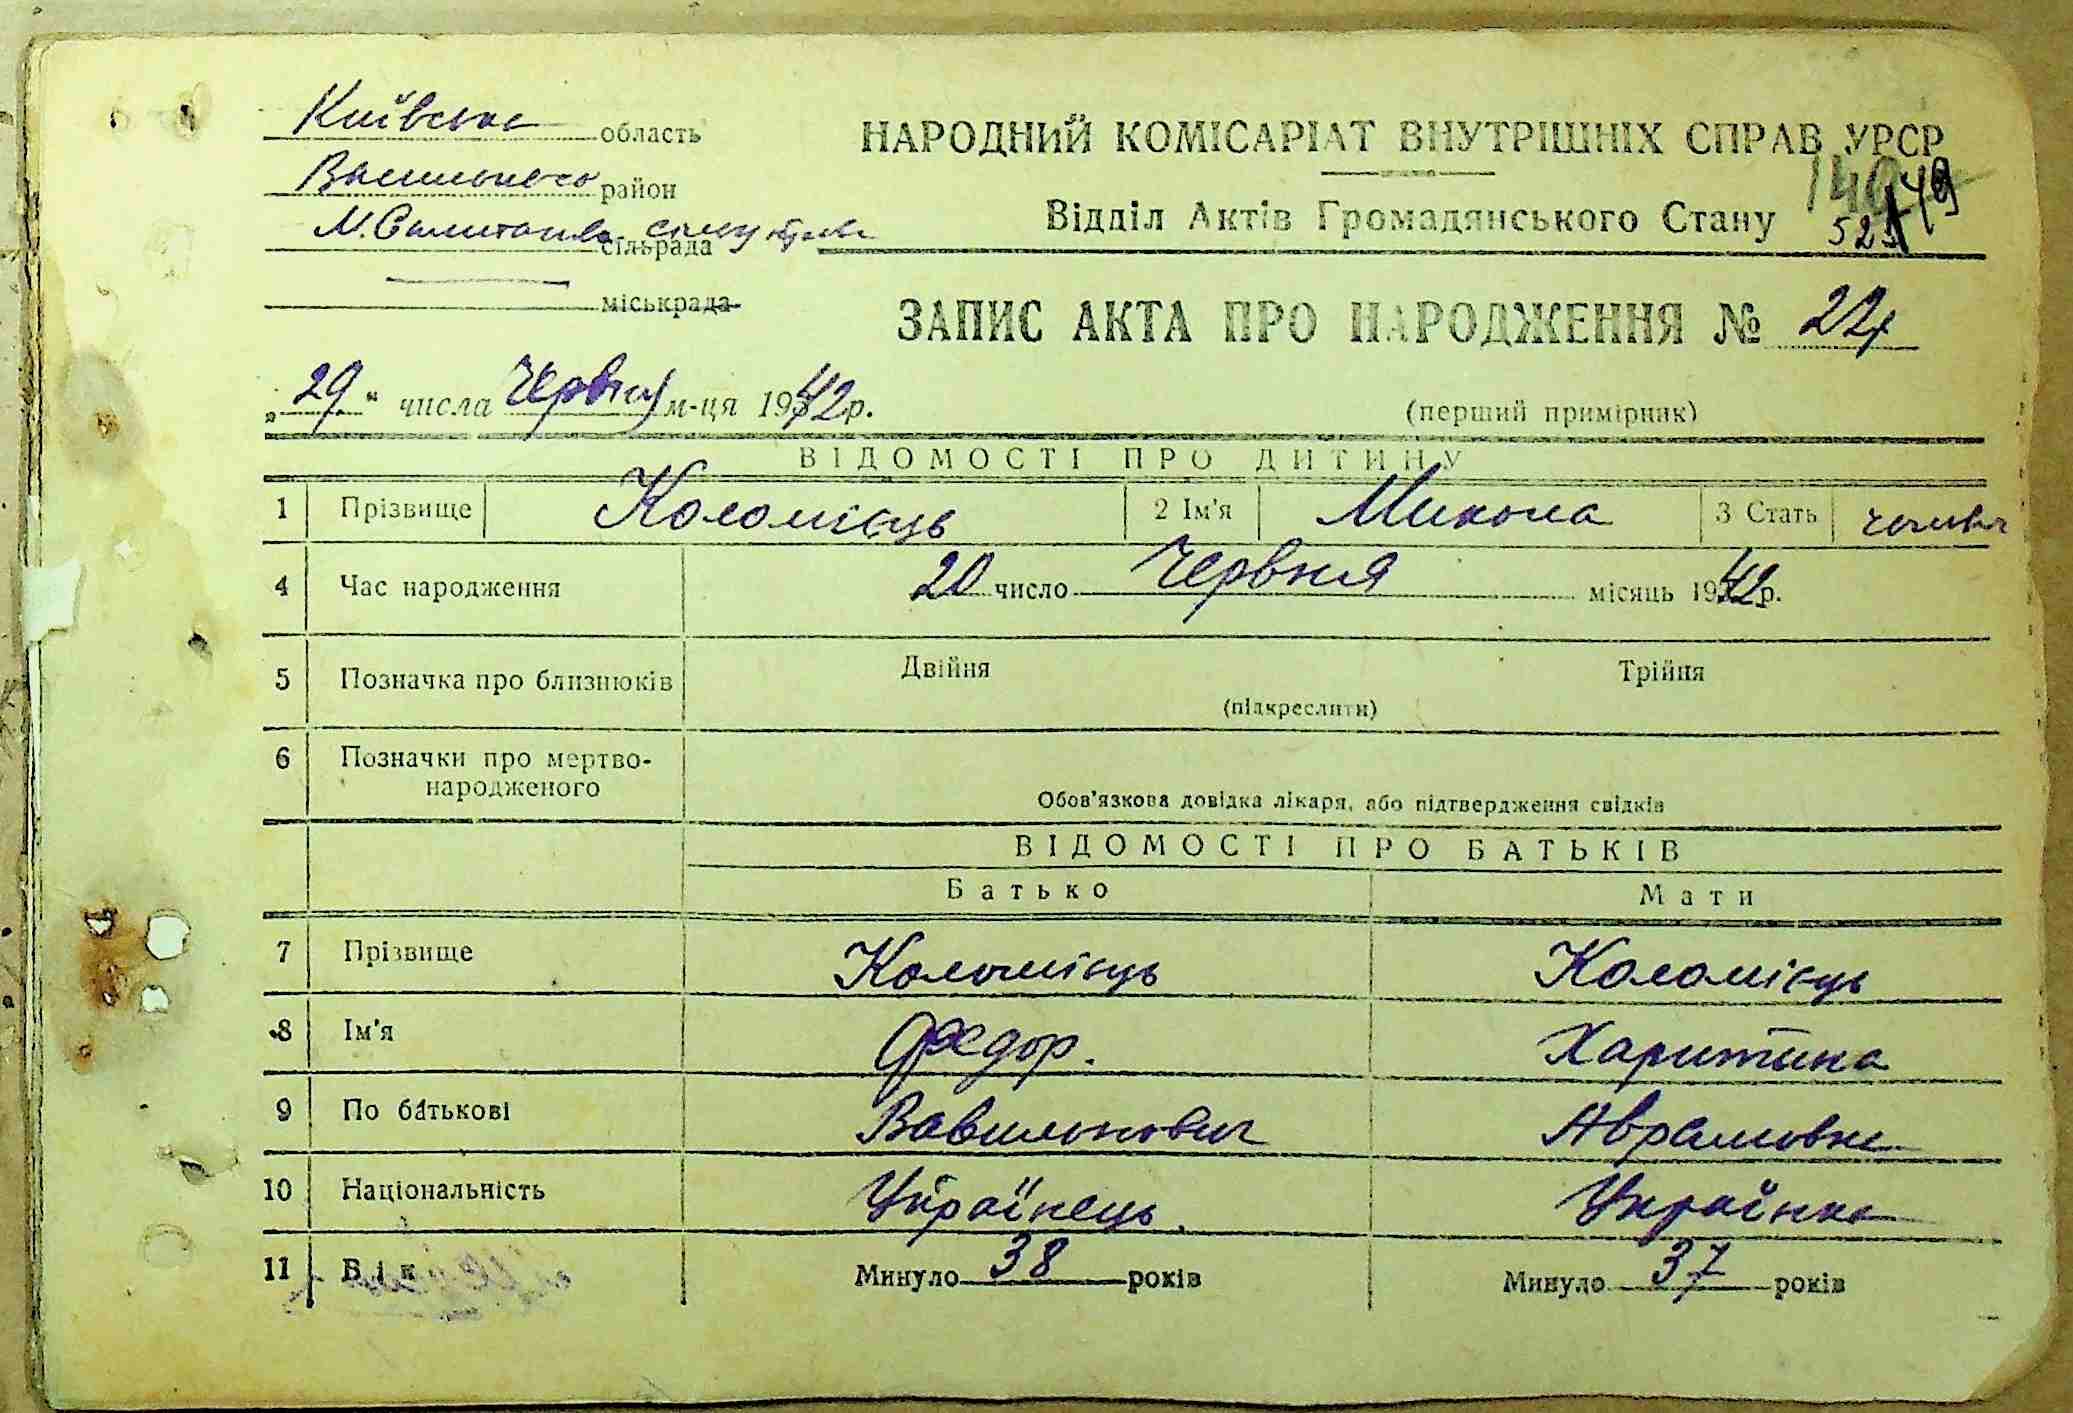 Київська область
НАРОДНИЙ КОМІСАРІАТ ВНУТРІШНІХ СПРАВ УРСР
район
149
Відділ Актів Громадянського Стану
сільрада
міськрада
ЗАПИС АКТА ПРО НАРОДЖЕННЯ №
„29“ числа Червня м-ця 1942 р.
(перший примірник)
ВІДОМОСТІ ПРО ДИТИНУ
1 Прізвище Коломієць 2 Ім'я Микола 3 Стать
4 Час народження 20 число Червня місяць 1942 р.
5 Позначка про близнюків Двійня Трійня
(підкреслити)
6 Позначки про мертво-
народженого
Обов'язкова довідка лікаря, або підтвердження свідків
ВІДОМОСТІ ПРО БАТЬКІВ
Батько Мати
7 Прізвище Коломієць Коломієць
8 Ім'я Федор. Харитина
9 По батькові Вавилонович Аврамовна
10 Національність Українець. Українка
11 Вік Минуло 38 років Минуло 37 років